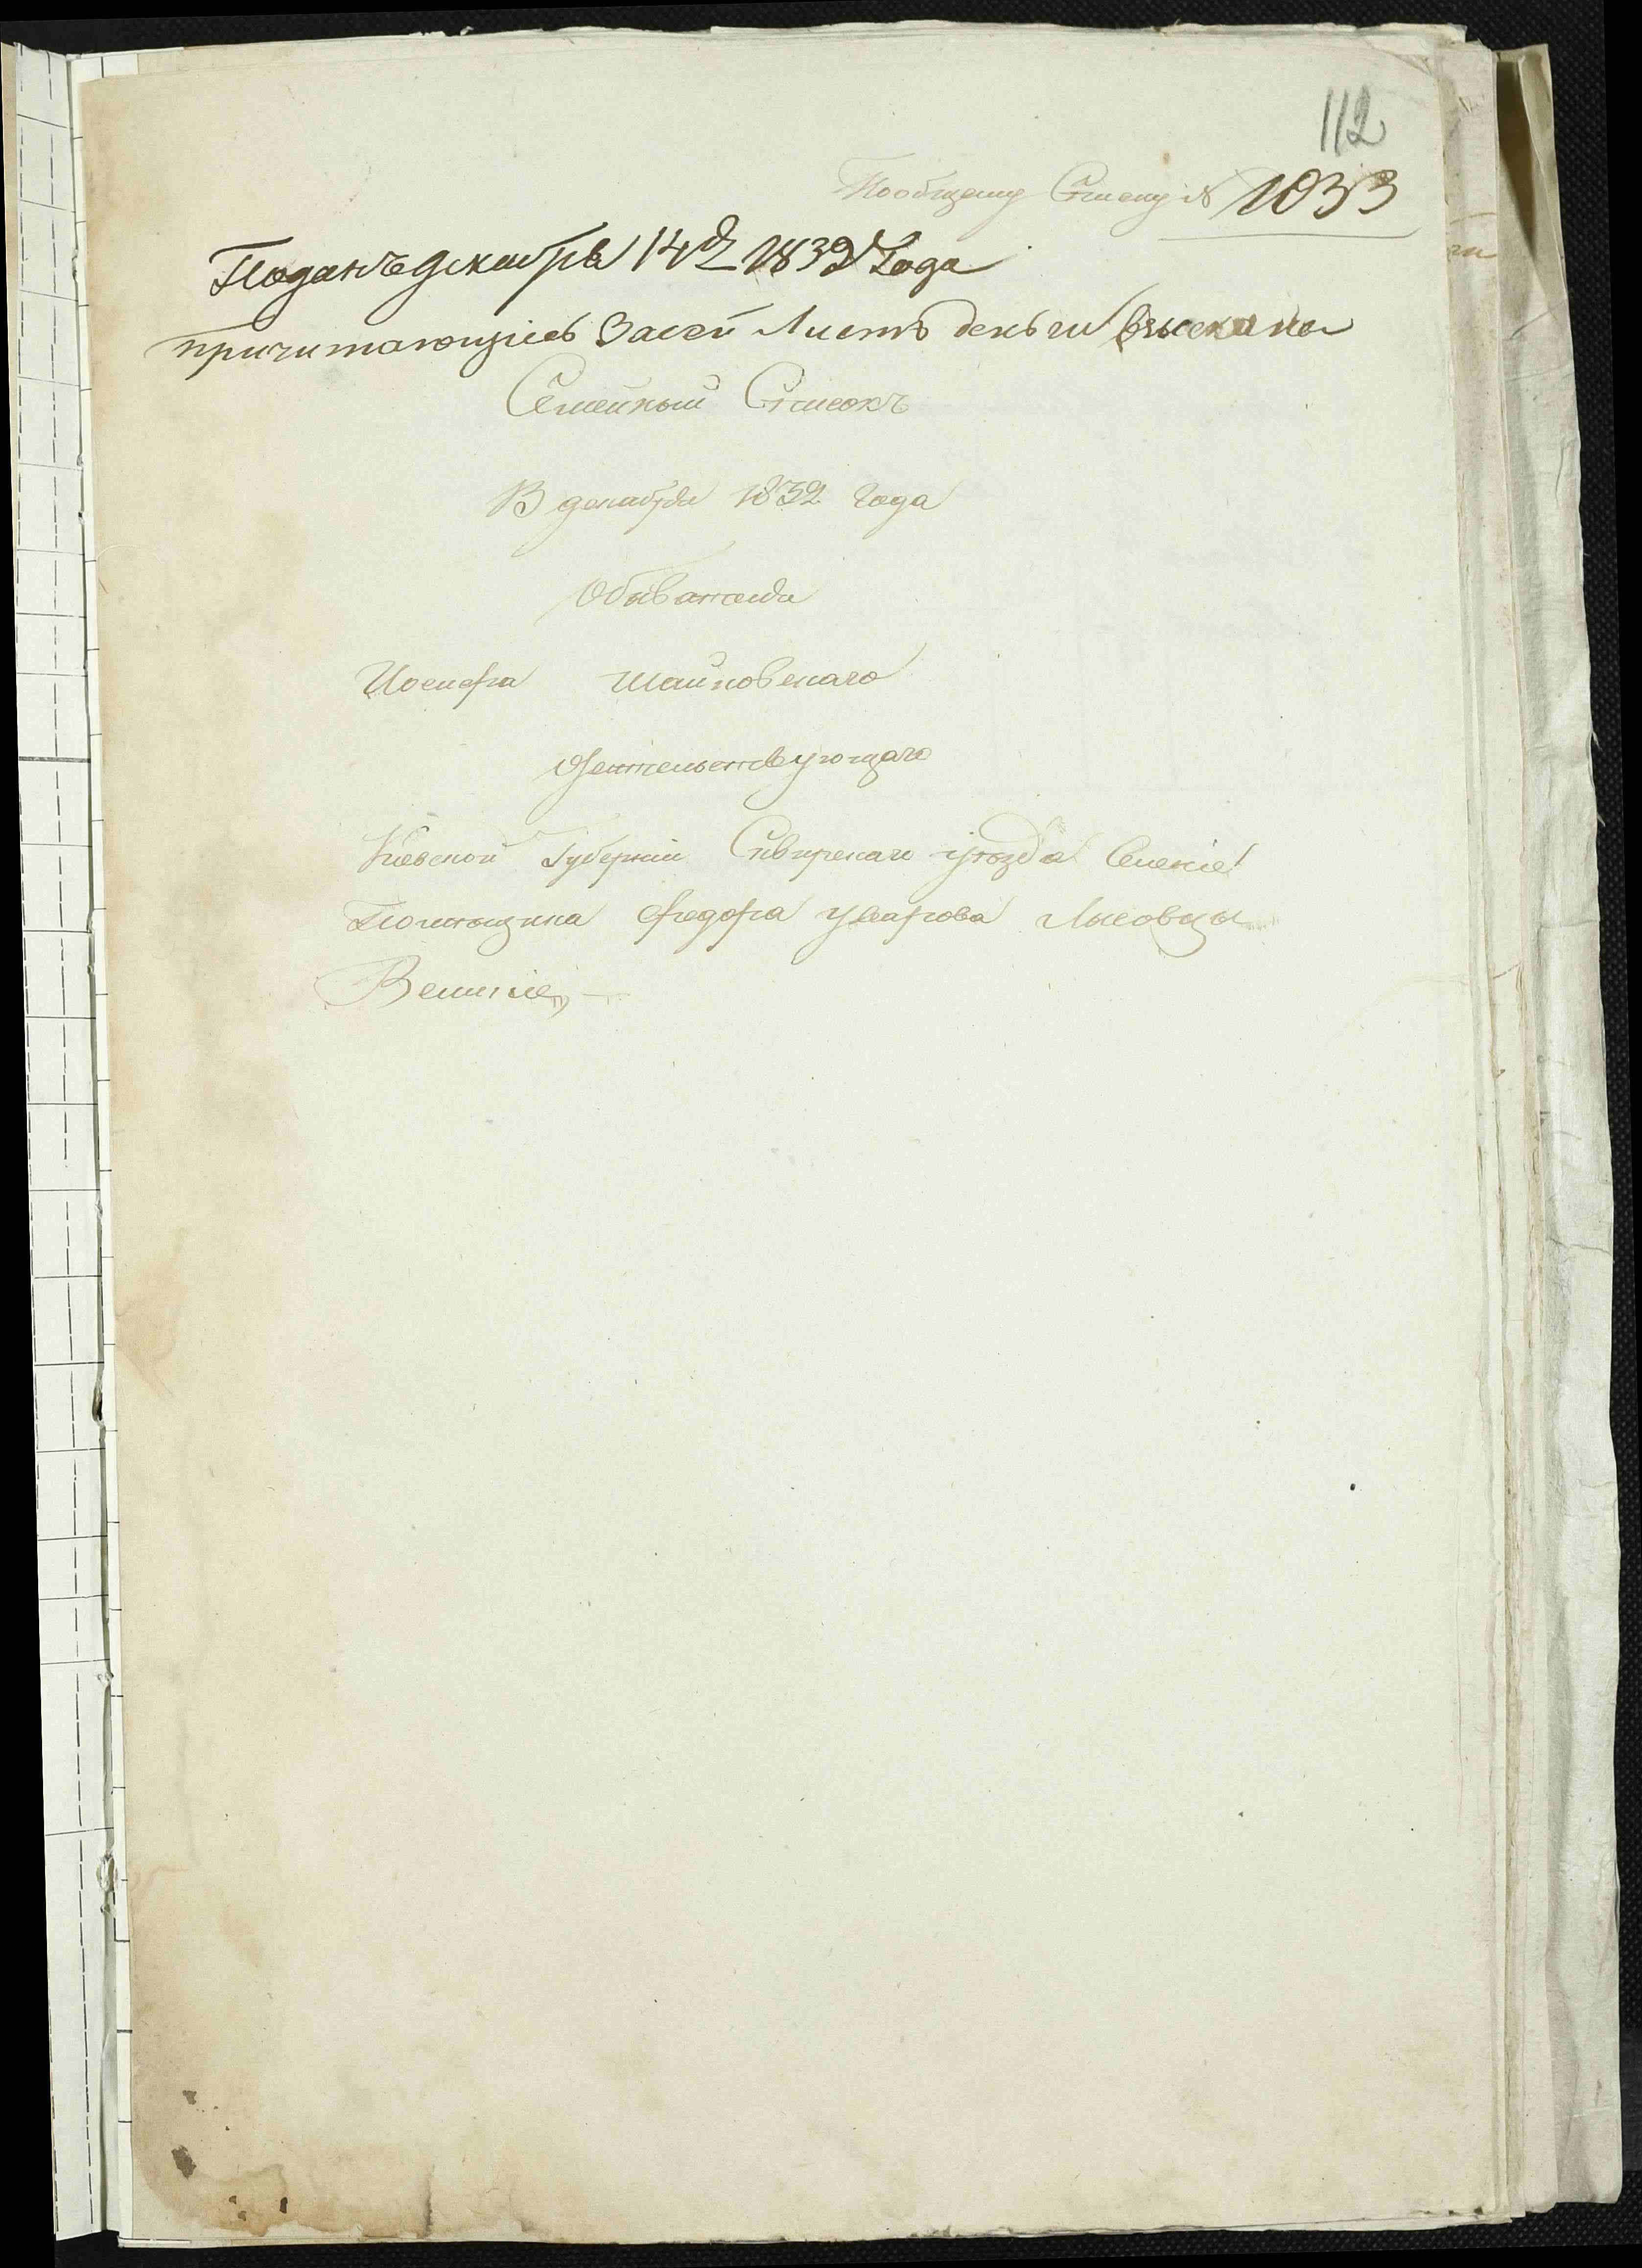 112
Пообщему Списку № 1033
Поданъ декабря 14 д 1832 Года
причитающіесъ Засей Листъ деньги взысканы
Семейный Списокъ
В декабря 1832 года
Обывателя
Иосифа Шайновскаго
Жительствующаго
Киевской Губерніи Сквирскаго уезда Селеніе
Помещика Федора Уварова Лисовцы
Великіе